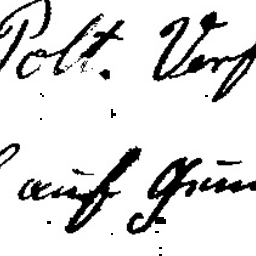 Polt. Verf
auf Grun